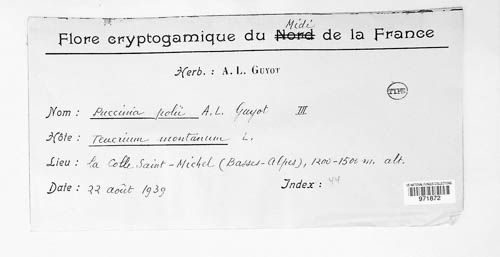 Midi
Flore cryptogamique du Nord de la France
Herb. : A. L. GUYOT
TYPE
Nom : Puccinia polii A. L. Guyot III
Hôte : Teucrium montanum L.
Lieu : la Colle Saint-Michel (Basses-Alpes), 1200-1500 m. alt.
Date : 22 août 1939
Index : 44
US NATIONAL FUNGUS COLLECTIONS
971872